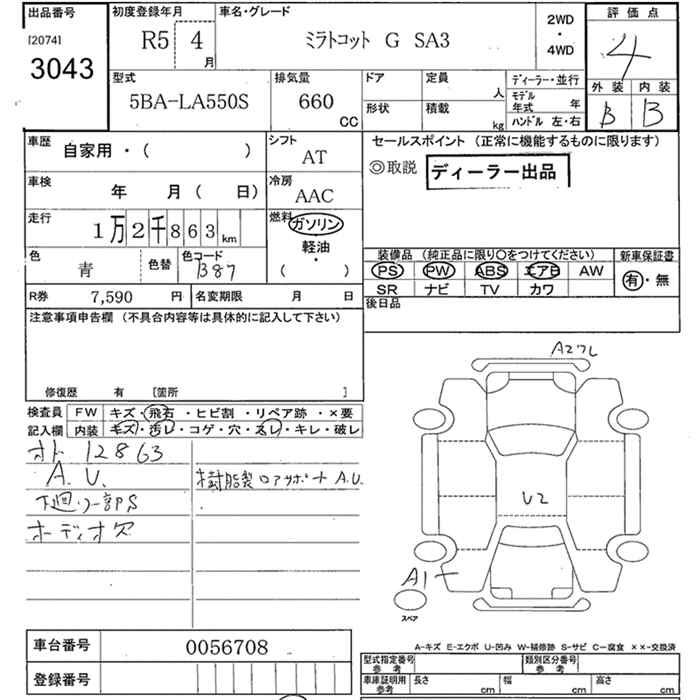 出品番号
[2074]
3043
初度登録年月
R5 4月
車名・グレード
ミラトコット G SA3
2WD
・
4WD
評価点
4
外装 内装
B B
型式
5BA-LA550S
排気量
660
CC
ドア
形状
定員
人
積載
kg
ディーラー・並行
モデル年式 年
ハンドル 左・右
車歴
自家用・( )
シフト
AT
セールスポイント (正常に機能するものに限ります)
◎取説 ディーラー出品
車検
年 月( 日)
冷房
AAC
走行
1万2千863km
燃料
ガソリン
軽油
・
( )
色
青
色替
色コード
B87
装備品 (純正品に限り○をつけてください)
PS PW ABS エアB AW
SR ナビ TV カワ
新車保証書
有・無
R券 7,590 円
名変期限 月 日
後日品
注意事項申告欄 (不具合内容等は具体的に記入して下さい)
修復歴 有 [箇所 ]
検査員記入欄
FW キズ・飛石・ヒビ割・リペア跡・×要
内装 キズ・汚レ・コゲ・穴・スレ・キレ・破レ
オド 12863
A.U.
樹脂製ロアサポートA.U.
下廻り一部PS
オーディオ欠
A2フレ
U2
A1
スペア
車台番号 0056708
登録番号
A-キズ E-エクボ U-凹み W-補修跡 S-サビ C-腐食 ××-交換済
型式指定番号
参考
類別区分番号
参考
車庫証明用
参考
長さ cm
幅 cm
高さ cm